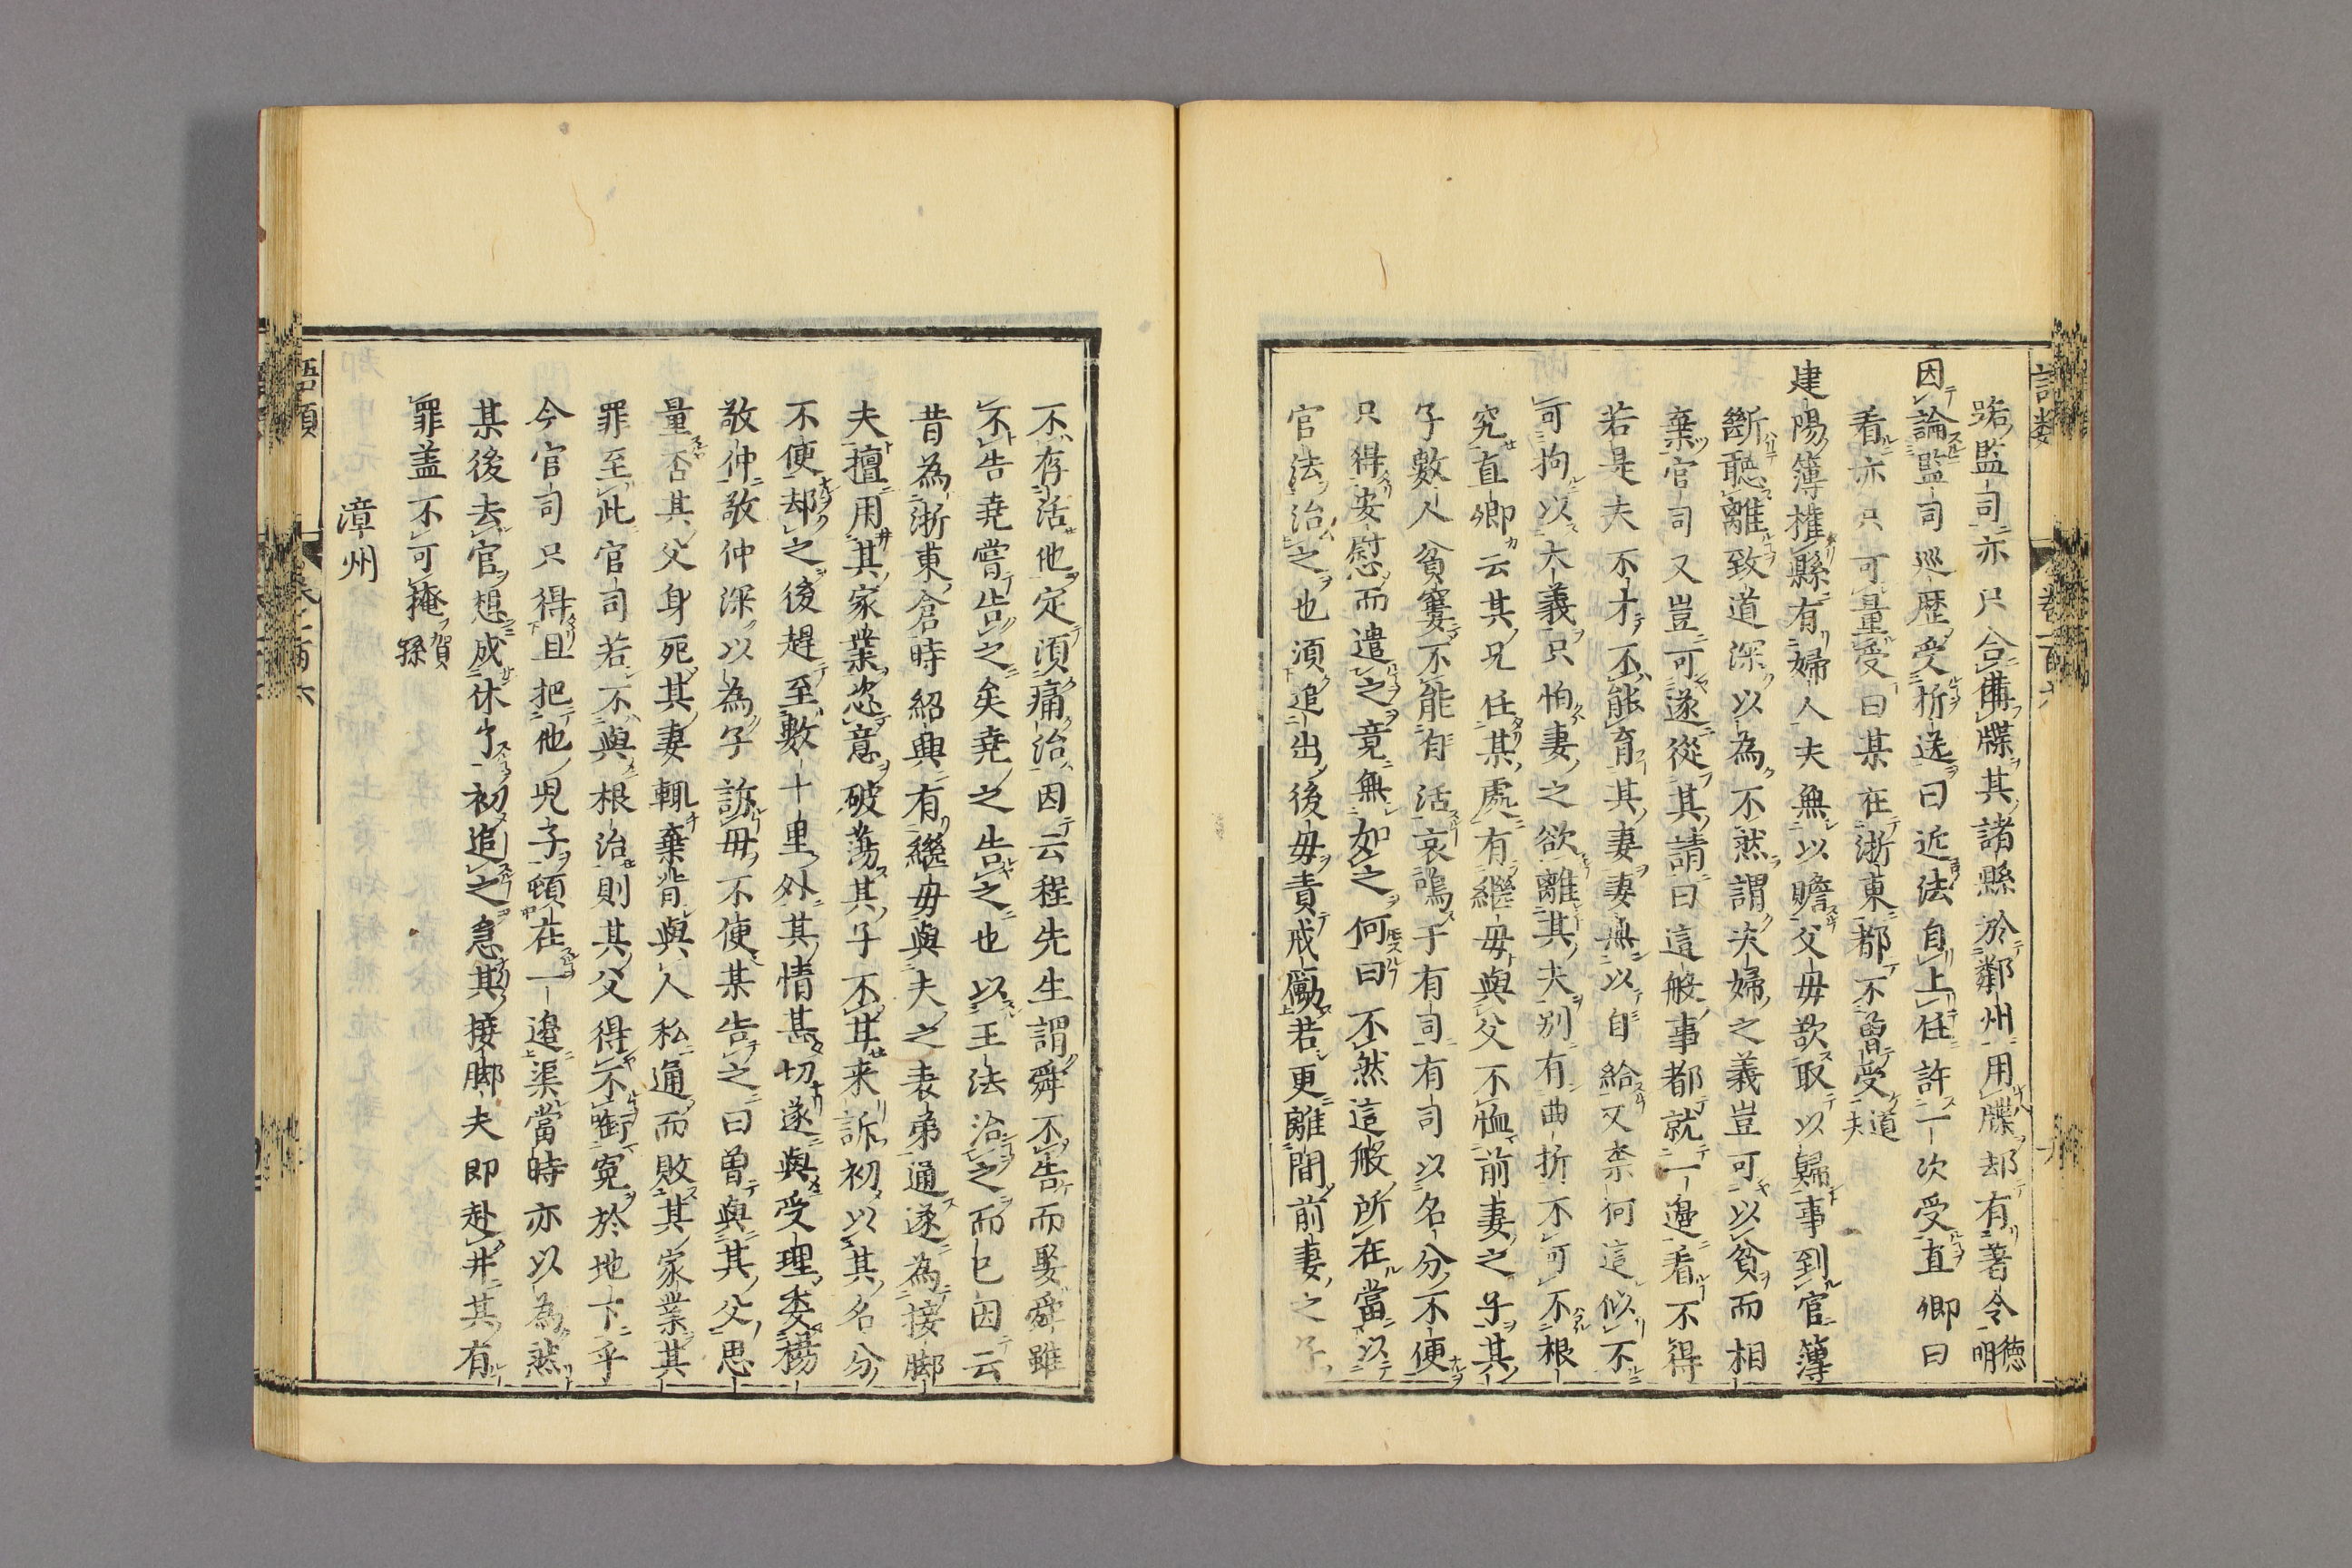 路監司亦只合備牒其諸縣於鄰州用牒却有著令德明
因論監司巡歷受折送曰近法自上任許一次受直卿曰
看亦只可量受曰某在浙東都不曾受道夫
建陽簿權縣有婦人夫無以贍父毋欲取以歸事到官簿
斷聽離致道深以為不然謂夫婦之義豈可以貧而相
棄官司又豈可遂從其請曰這般事都就一邊看不得
若是夫不才不能育其妻妻無以自給又柰何這似不
可拘以大義只怕妻之欲離其夫別有曲折不可不根
究直卿云其兄任某處有繼毋與父不恤前妻之子其
子數人貧窶不能有活哀鳴于有司有司以名分不便
只得安慰而遣之竟無如之何曰不然這般所在當以
官法治之也須追出後毋責戒勵若更離間前妻之子
不存活他定須痛治因云程先生謂舜不告而娶舜雖
不告堯嘗告之矣堯之告之也以王法治之而已因云
昔為浙東倉時紹興有繼毋與夫之表弟通遂為接脚
夫擅用其家業恣意破蕩其子不甘来訴初以其名分
不便却之後趕至數十里外其情甚切遂與受理委楊
敬仲敬仲深以為子訴毋不便某告之曰曾與其父思
量否其父身死其妻輒棄背與人私通而敗其家業其
罪至此官司若不與根治則其父得不銜寃於地下乎
今官司只得且把他兒子頓在一邊渠當時亦以為然
某後去官想成休了初追之急其接脚夫即赴井其有
罪盖不可掩賀孫
漳州